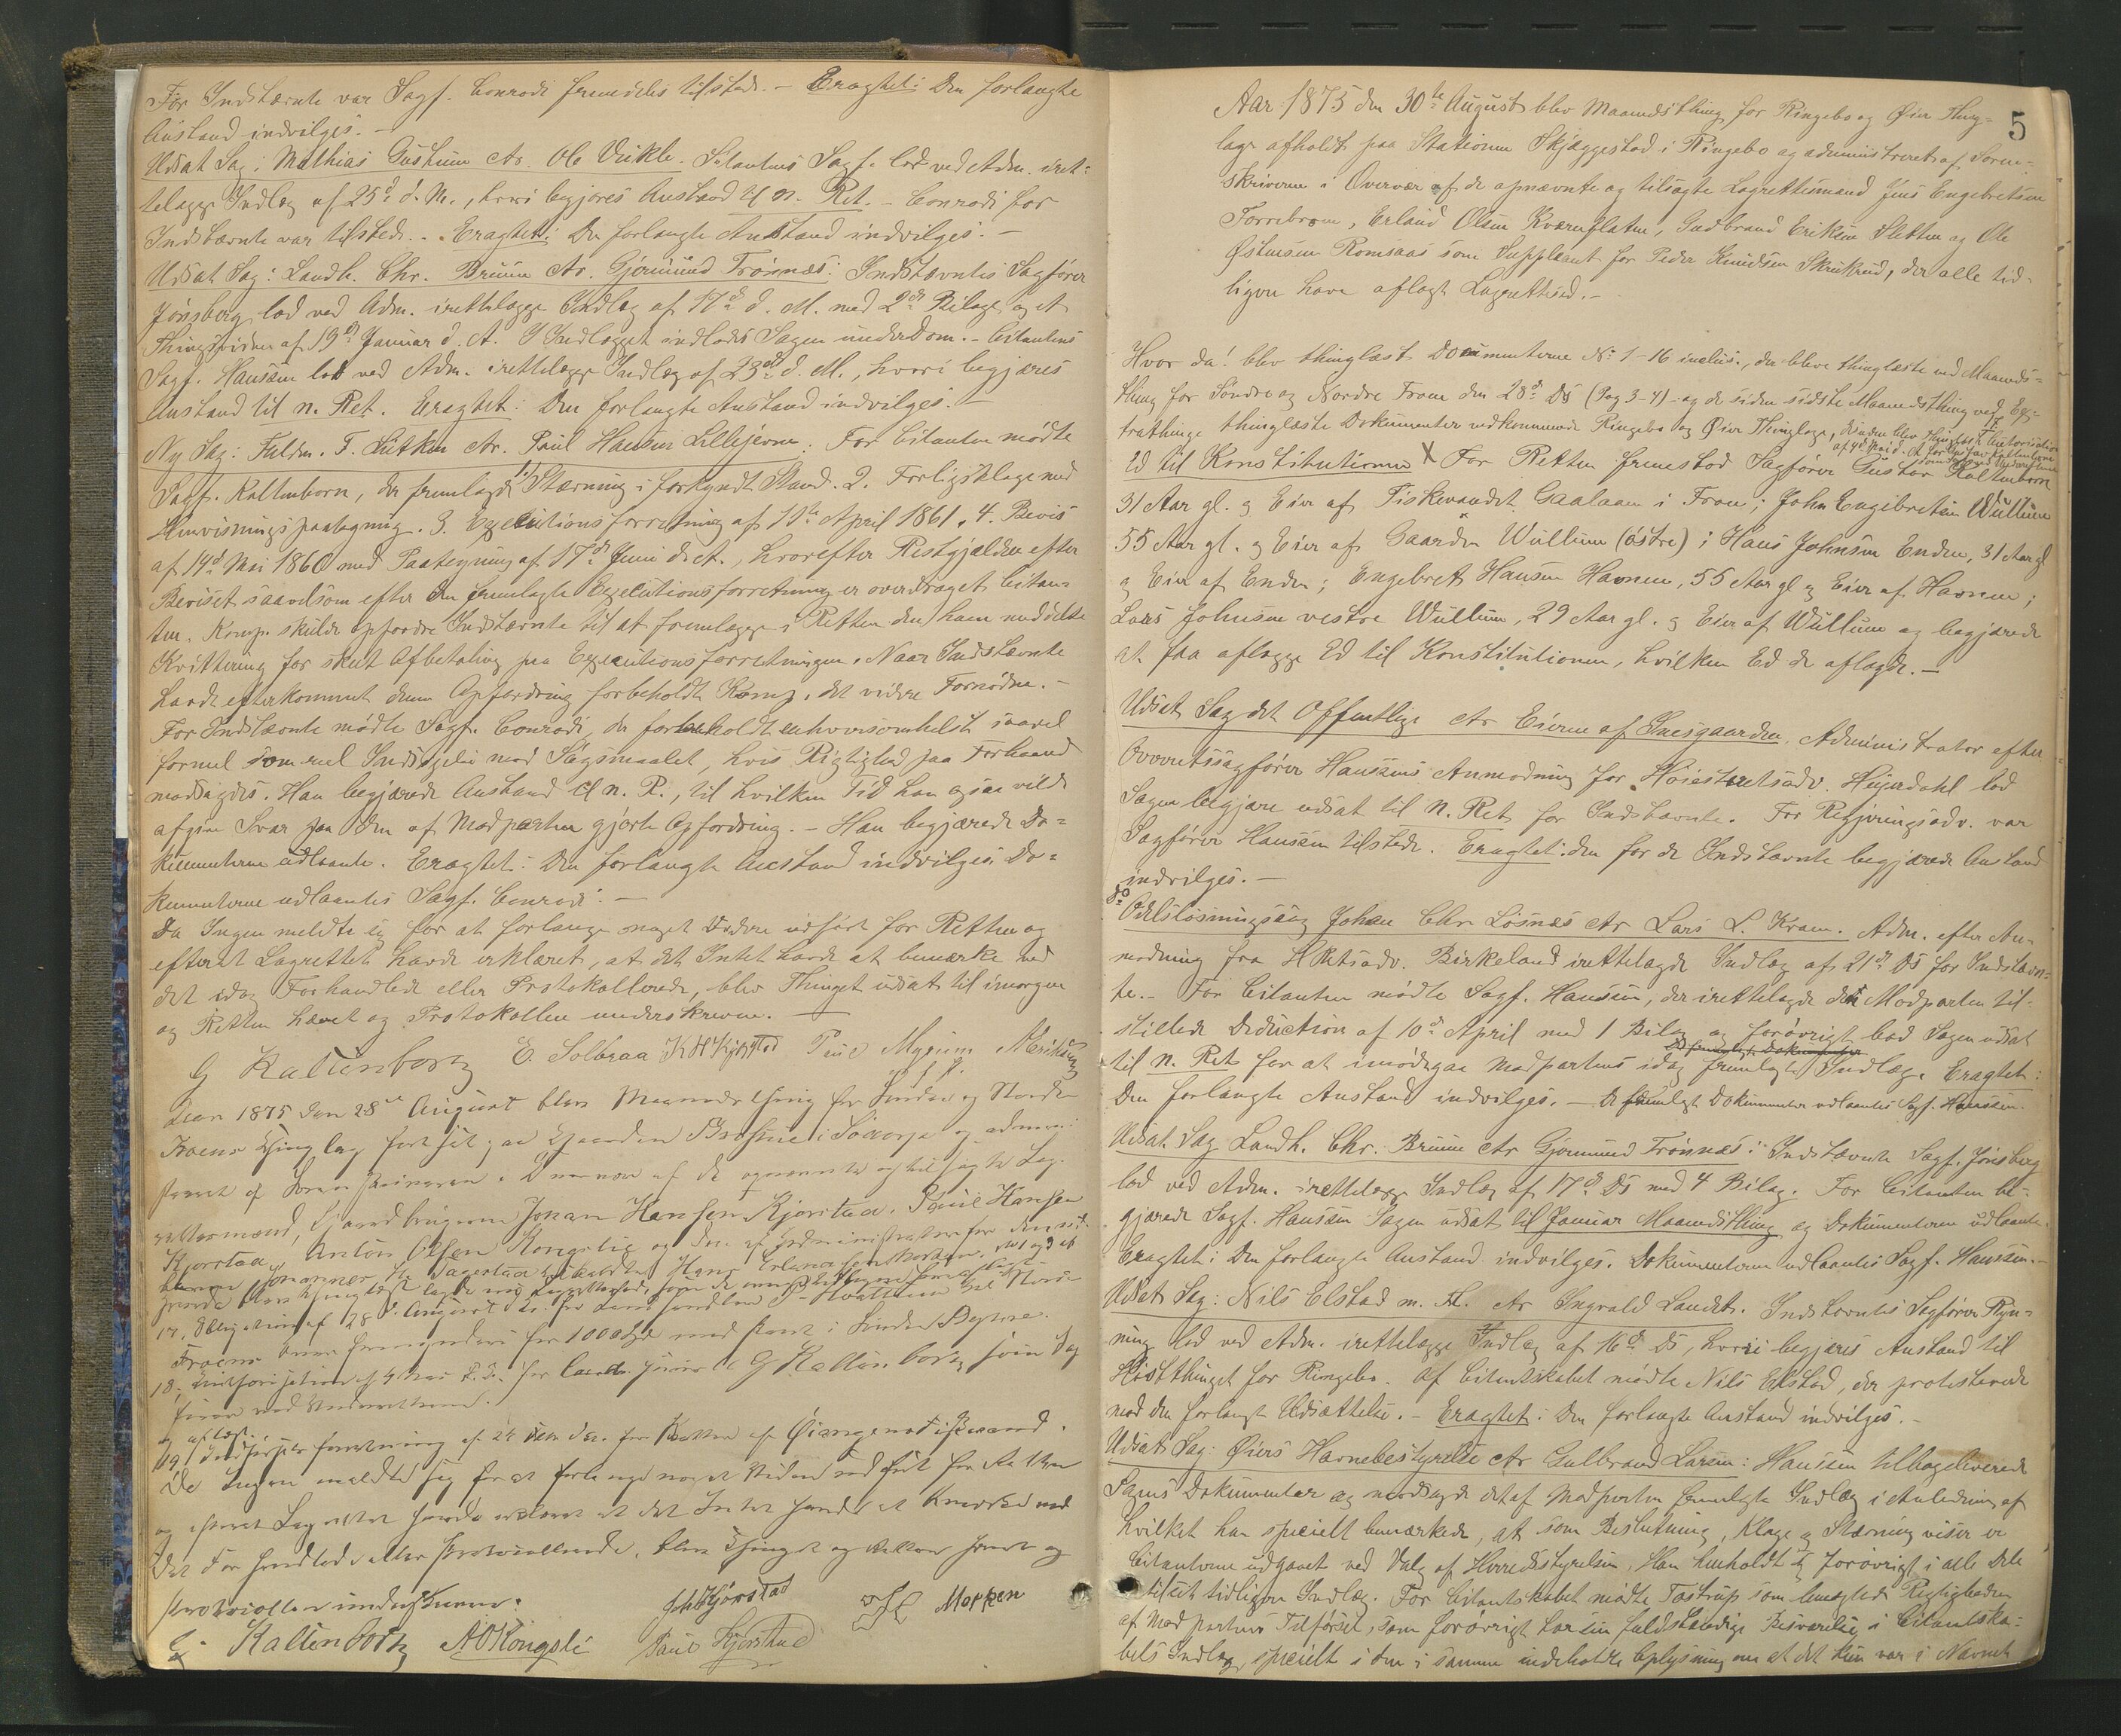 For Indstævnte var Sagf. Conradi fremdeles tilstede. - Eragtet: Den forlangte
Anstand indvilges. -
Udsat Sag: Mathias Gustum ctr. Ole Vikle. Citantens Sagf. lod ved Adm. iret-
telægge Indlæg af 25d d. M., hvori begjæres Anstand til n. Ret. - Conradi for
Indstævnte var tilstede. - Eragtet: Den forlangte Anstand indvilges. -
Udsat Sag: Landh. Chr. Bruun ctr. Gjørmund Trønnæs: Indstævntes Sagfører
Jønsberg lod ved Adm. irettelægge Indlæg af 17de d. M. med 2de Bilage og et
Thingsvidne af 19de Januar d. A. I Indlægget indlodes Sagen under Dom. - Citantens
Sagf. Hanssen lod ved Adm. irettelægge Indlæg af 23de d. M., hvori begjæres
Anstand til n. Ret. Eragtet: Den forlangte Anstand indvilges. -
Ny Sag: Fuldm. F. Lütken ctr. Paul Hansen Lillejevne. For Citanten mødte
Sagf. Kaltenborn, der fremlagde 1.) Stævning i forkyndt Stand. 2. Forligsklage med
Henvisningspaategning. 3. Executionsforretning af 10de April 1861. 4. Bevis
af 14d Mai 1860 med Paategning af 17de Juni d. A., hvorefter Restgjælden efter
Beviset saavelsom efter den fremlagte Executionsforretning er overdraget Citan-
ten. Komp. skulde opfordre Indstævnte til at fremlægge i Retten den ham meddelte
Kvittering for skeet Afbetaling paa Executionsforretningen. Naar Indstævnte
havde efterkommet denne Opfordring forbeholdt Komp. det videre Fornødne. -
For Indstævnte mødte Sagf. Conradi, der forbeholdt enhversomhelst saavel
formel som reel Indsigelse mod Søgsmaalet, hvis Rigtighed paa Forhaand
modsagdes. Han begjærede Anstand til n. R., til hvilken Tid han ogsaa vilde
afgive Svar paa den af Modparten gjorte Opfordring. - Han begjærede Do-
kumenterne udlaante. Eragtet: Den forlangte Anstand indvilges. Do-
kumenterne udlaantes Sagf. Conradi. -
Da Ingen meldte sig for at forlange noget Videre udført for Retten og
efterat Lagrettet havde erklæret, at det Intet havde at bemærke ved
det idag Forhandlede eller Protokollerede, blev Thinget udsat til imorgen
og Retten hævet og Protokollen underskreven. -
G Kaltenborn E. Solbraa K H Kjørstad Paul Mysuen
Aar 1875 den 28de August blev Maanedsthing for Søndre og Nordre
Froens Thinglag fortsat paa Gaarden i Sødorp og admini-
streret af Sorenskriveren i Overvær af de opnævnte og tilsagte Lag-
rettesmænd, Gaardbrugerne Johan Hansen Kjørstad, Paul Hansen
Kjørstad, Anton Olsen Kongslie og den af Administrator for
17, Obligation af 28 d. August
Froens for 1000 Spd med Pant i Søndre
18, Autorisation af 4 Mai for Cand. juris G Kaltenborn som Sag-
fører ved Underretterne.
19, forretning af for Retten af Øiangen Fiskevand.
Da Ingen meldte sig for at forlange noget Videre udført for Retten
og efterat Lagrettet havde erklæret at det Intet havde at bemærke ved
det Forhandlede eller Protocollerede, blev Thinget og Retten hævet og
Protocollen underskreven.
G. Kaltenborn A O Kongsli JohHKjørstad Paul Kjørstad Moppen
5
Aar 1875 den 30te August blev Maanedsthing for Ringebo og Øier Thing-
lage afholdt paa Stationen Skjæggestad i Ringebo og administreret af Soren-
skriveren i Overvær af de opnævnte og tilsagte Lagrettesmænd Jens Engebretsen
Forrebroen, Erland Olsen Kværnflaten, Gudbrand Eriksen Sletten og Ole
Østensen Romsaas som Suppleant for Peder Knudsen Skrukrud, der alle tid-
ligere have aflagt Lagrettesed. -
Hvor da! blev thinglæst Documenterne No 1-16 inclus., der bleve thinglæste ved Maaneds-
thing for Søndre og Nordre Froen den 28d Ds (Pag 3-4) og de siden sidste Maanedsthing ved Ex-
trathinge thinglæste Dokumenter vedkommende Ringebo og Øier Thinglage, desuden blev thinglæst Autorisation
af 4d Mai d. A. for Gustav Kaltenborn
som Sagfører ved Underretterne
Ed til Konstitutionen X For Retten fremstod Sagfører Gustav Kaltenborn
31 Aar gl. og Eier af Fiskevandet Gaalaaen i Froen; John Engebretsen Wullum
55 Aar gl. og Eier af Gaarden Wullum (østre); Hans Johnsen Enden, 31 Aar gl
og Eier af Enden; Engebret Hansen Havnen, 55 Aar gl og Eier af Havnen;
Lars Johnsen vestre Wullum, 29 Aar gl. og Eier af Wullum og begjærede
at faa aflægge Ed til Konstitutionen, hvilken Ed de aflagde. -
Udsat Sag det Offentlige ctr Eierne af Snesgaarden. Administrator efter
Overretssagfører Hanssens Anmodning for Høiesteretsadv. Heyerdahl lod
Sagen begjære udsat til n. Ret for Indstævnte. For Regjeringsadv. var
Sagfører Hanssen tilstede. Eragtet: den for de Indstævnte begjærede Anstand
indvilges. -
do Odelsløsningssag Johan Chr Løsnæs ctr Lars L. Kram. Adm. efter An-
modning fra HRetsadv. Birkeland irettelagde Indlæg af 21de Ds for Indstævn-
te. - For Citanten mødte Sagf. Hanssen, der irettelagde den Modparten til-
stillede Deduction af 10d April med 1 Bilag og forøvrigt bad Sagen udsat
til n. Ret for at imødegaa Modpartens idag fremlagte Indlæg. Eragtet:
Den forlangte Anstand indvilges. - De fremlagte Dokumenter udlaantes Sagf. Hanssen.
Udsat Sag Landh. Chr. Bruun ctr Gjørmund Trønnæs: Indstævnte Sagf. Jønsberg
lod ved Adm. irettelægge Indlæg af 17d Ds med 4 Bilag. For Citanten be-
gjærede Sagf. Hanssen Sagen udsat til Januar Maanedsthing og Dokumenterne udlaante.
Eragtet: Den forlangte Anstand indvilges. Dokumenterne udlaantes Sagf. Hanssen. -
Udsat Sag: Nils Elstad m. Fl. ctr Ingvald Landet. Indstævntes Sagfører Ryn-
ning lod ved Adm. irettelægge Indlæg af 16d Ds, hvori begjæres Anstand til
Høstthinget for Ringebo. Af Citantskabet mødte Nils Elstad, der protesterede
mod den forlangte Udsættelse. - Eragtet: Den forlangte Anstand indvilges. -
Udsat Sag: Øiers Havnebestyrelse ctr Gulbrand Larsen: Hanssen tilbageleverede
Sagens Dokumenter og modsagde det af Modparten fremlagte Indlæg i Anledning af
hvilket han specielt bemærkede, at som Beslutning, Klage og Stævning viser er
Citanterne udgaaet ved Valg af Herredsstyrelsen. Han henholdt sig forøvrigt i alle Dele
til sit tidligere Indlæg. For Citantskabet mødte Tostrup som benægtede Rigtigheden
af Modpartens Tilførsel, som forøvrigt har sin fuldstændige Besvarelse i Citantska-
bets Indlæg, specielt i den i samme indeholdte Oplysning om at det kun var i Navnet